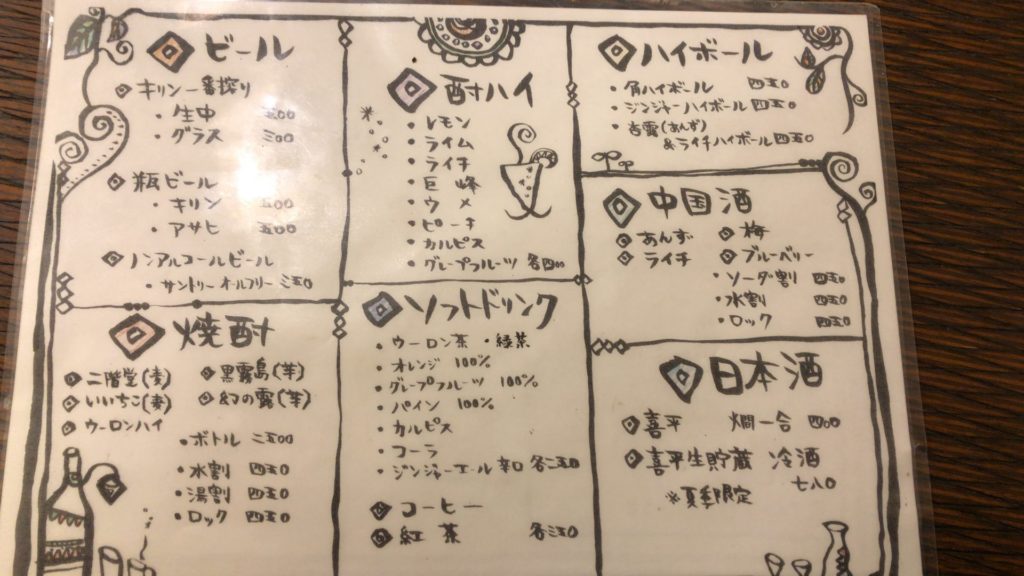 ビール
キリン一番搾り
・生中 五00
・グラス 三00
瓶ビール
・キリン 五00
・アサヒ 五00
ノンアルコールビール
・サントリーオールフリー 三五0
酎ハイ
・レモン
・ライム
・ライチ
・巨峰
・ウメ
・ピーチ
・カルピス
・グレープフルーツ 各四00
ハイボール
・角ハイボール 四五0
・ジンジャーハイボール 四五0
・杏露(あんず)
&ライチハイボール 四五0
中国酒
あんず 梅
ライチ ブルーベリー
・ソーダ割 四五0
・水割 四五0
・ロック 四五0
焼酎
二階堂(麦) 黒霧島(芋)
いいちこ(麦) 幻の露(芋)
ウーロンハイ
・ボトル 二五00
・水割 四五0
・湯割 四五0
・ロック 四五0
ソフトドリンク
・ウーロン茶 ・緑茶
・オレンジ 100%
・グレープフルーツ 100%
・パイン 100%
・カルピス
・コーラ
・ジンジャーエール 辛口 各三五0
コーヒー
紅茶 各三五0
日本酒
喜平 燗一合 四00
喜平生貯蔵 冷酒
※夏季限定 七八0